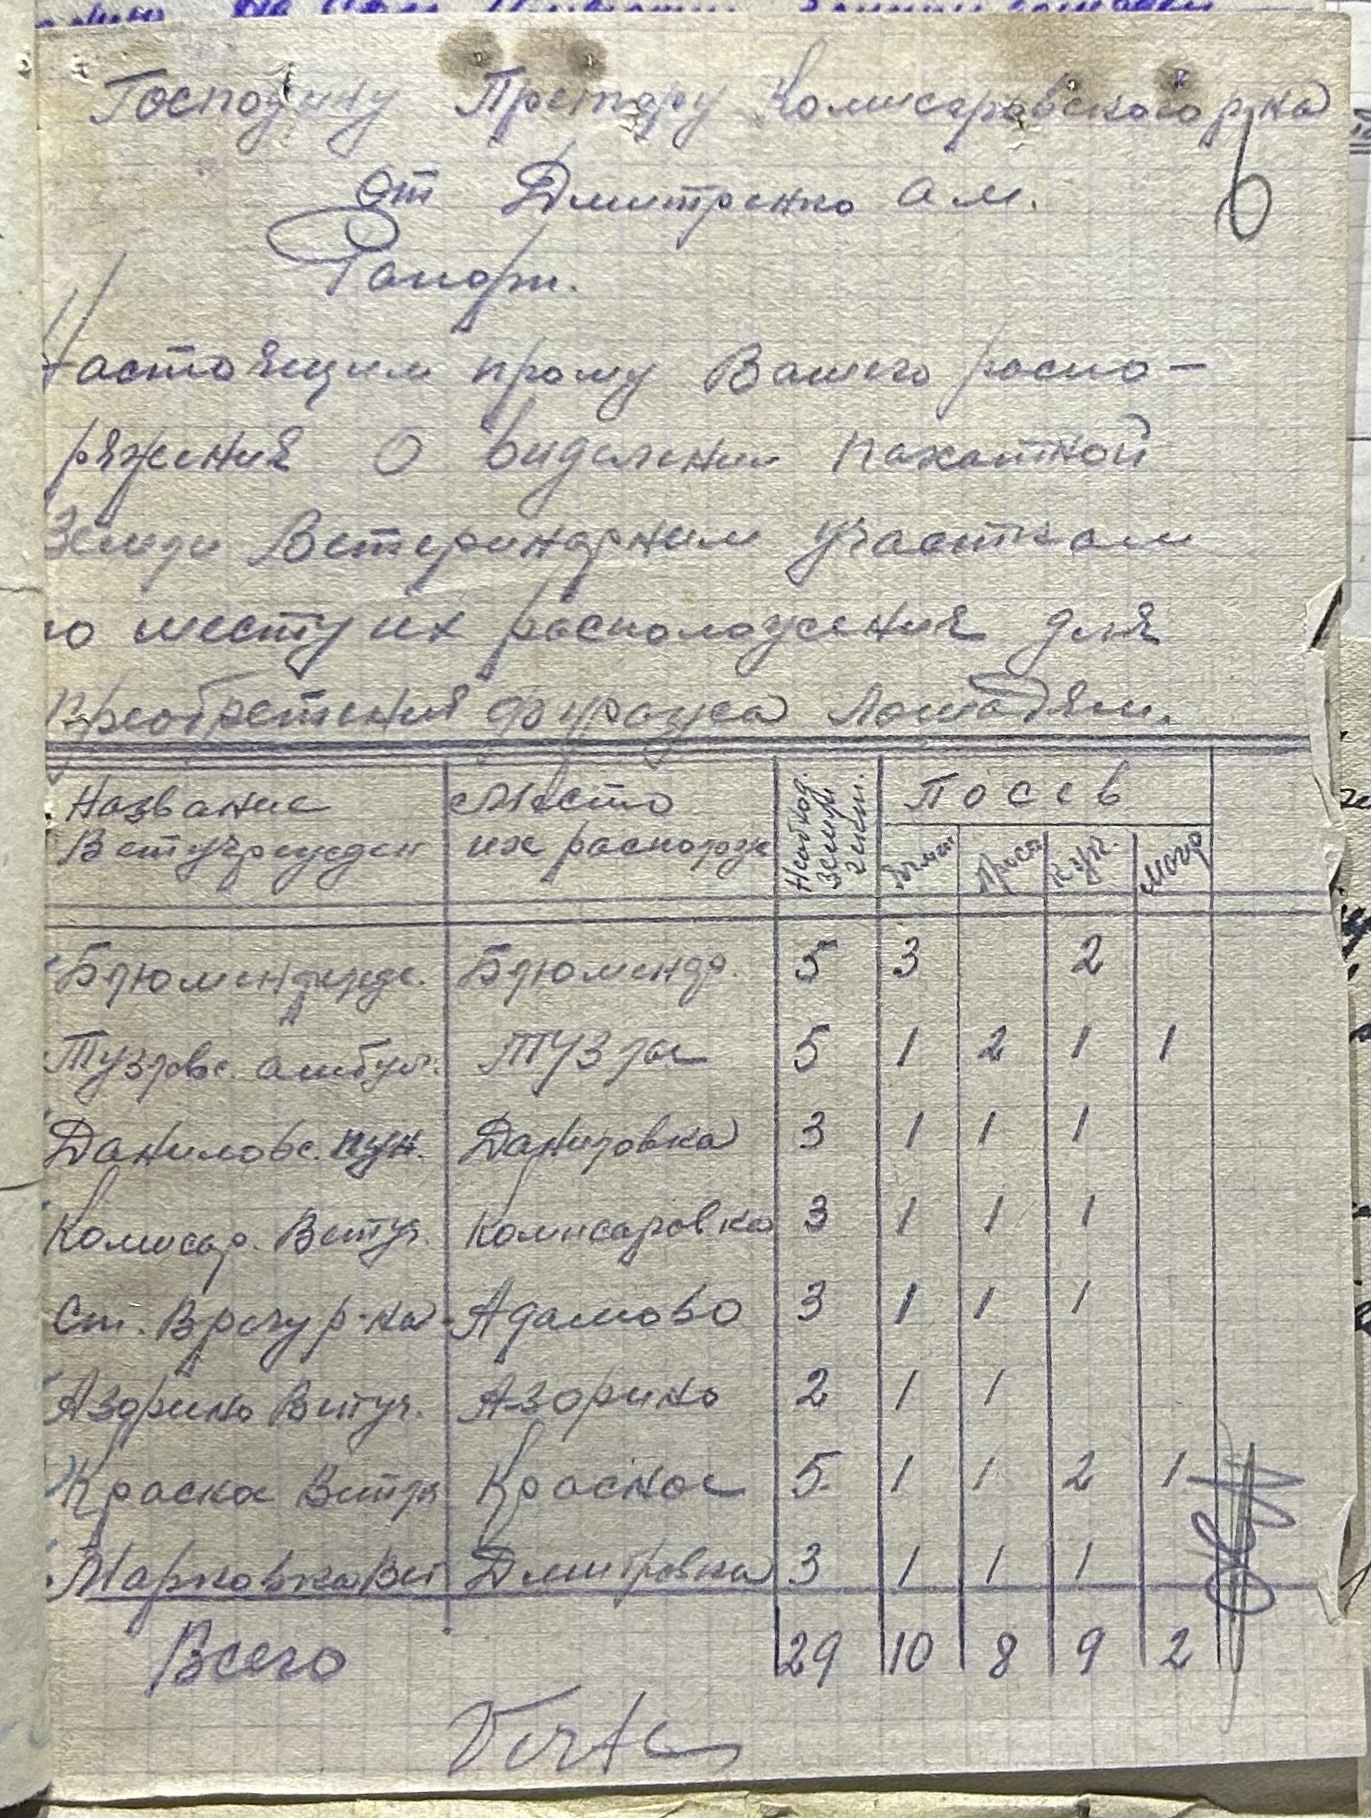 Господину Претору Комисаровского р-на
6
От Дмитренко А М.
Рапорт.
Настоящим прошу Вашего распо-
ряжения О виделении пахатной
Земли Ветеринарним участкам
по месту их расположения для
преобретения фуража Лошадям.
Название Ветучрежден | Место их располож | Необход. Земли | Посев
Ячмен | Проса | Кук. | Могар
Блюменфельдс. | Блюменф. | 5 | 3 | | 2 |
Тузловс. амбул. | Тузлы | 5 | 1 | 2 | 1 | 1
Даниловс. пун. | Даниловка | 3 | 1 | 1 | 1 |
Комисар. Ветуч. | Комисаровка | 3 | 1 | 1 | 1 |
Ст. Врачу р-на | Адамово | 3 | 1 | 1 | 1 |
Азорино Ветуч. | Азорино | 2 | 1 | 1 | |
Красна Ветуч | Красное | 5 | 1 | 1 | 2 | 1
Марковка Вет | Дмитровка | 3 | 1 | 1 | 1 |
Всего | 29 | 10 | 8 | 9 | 2
Verte